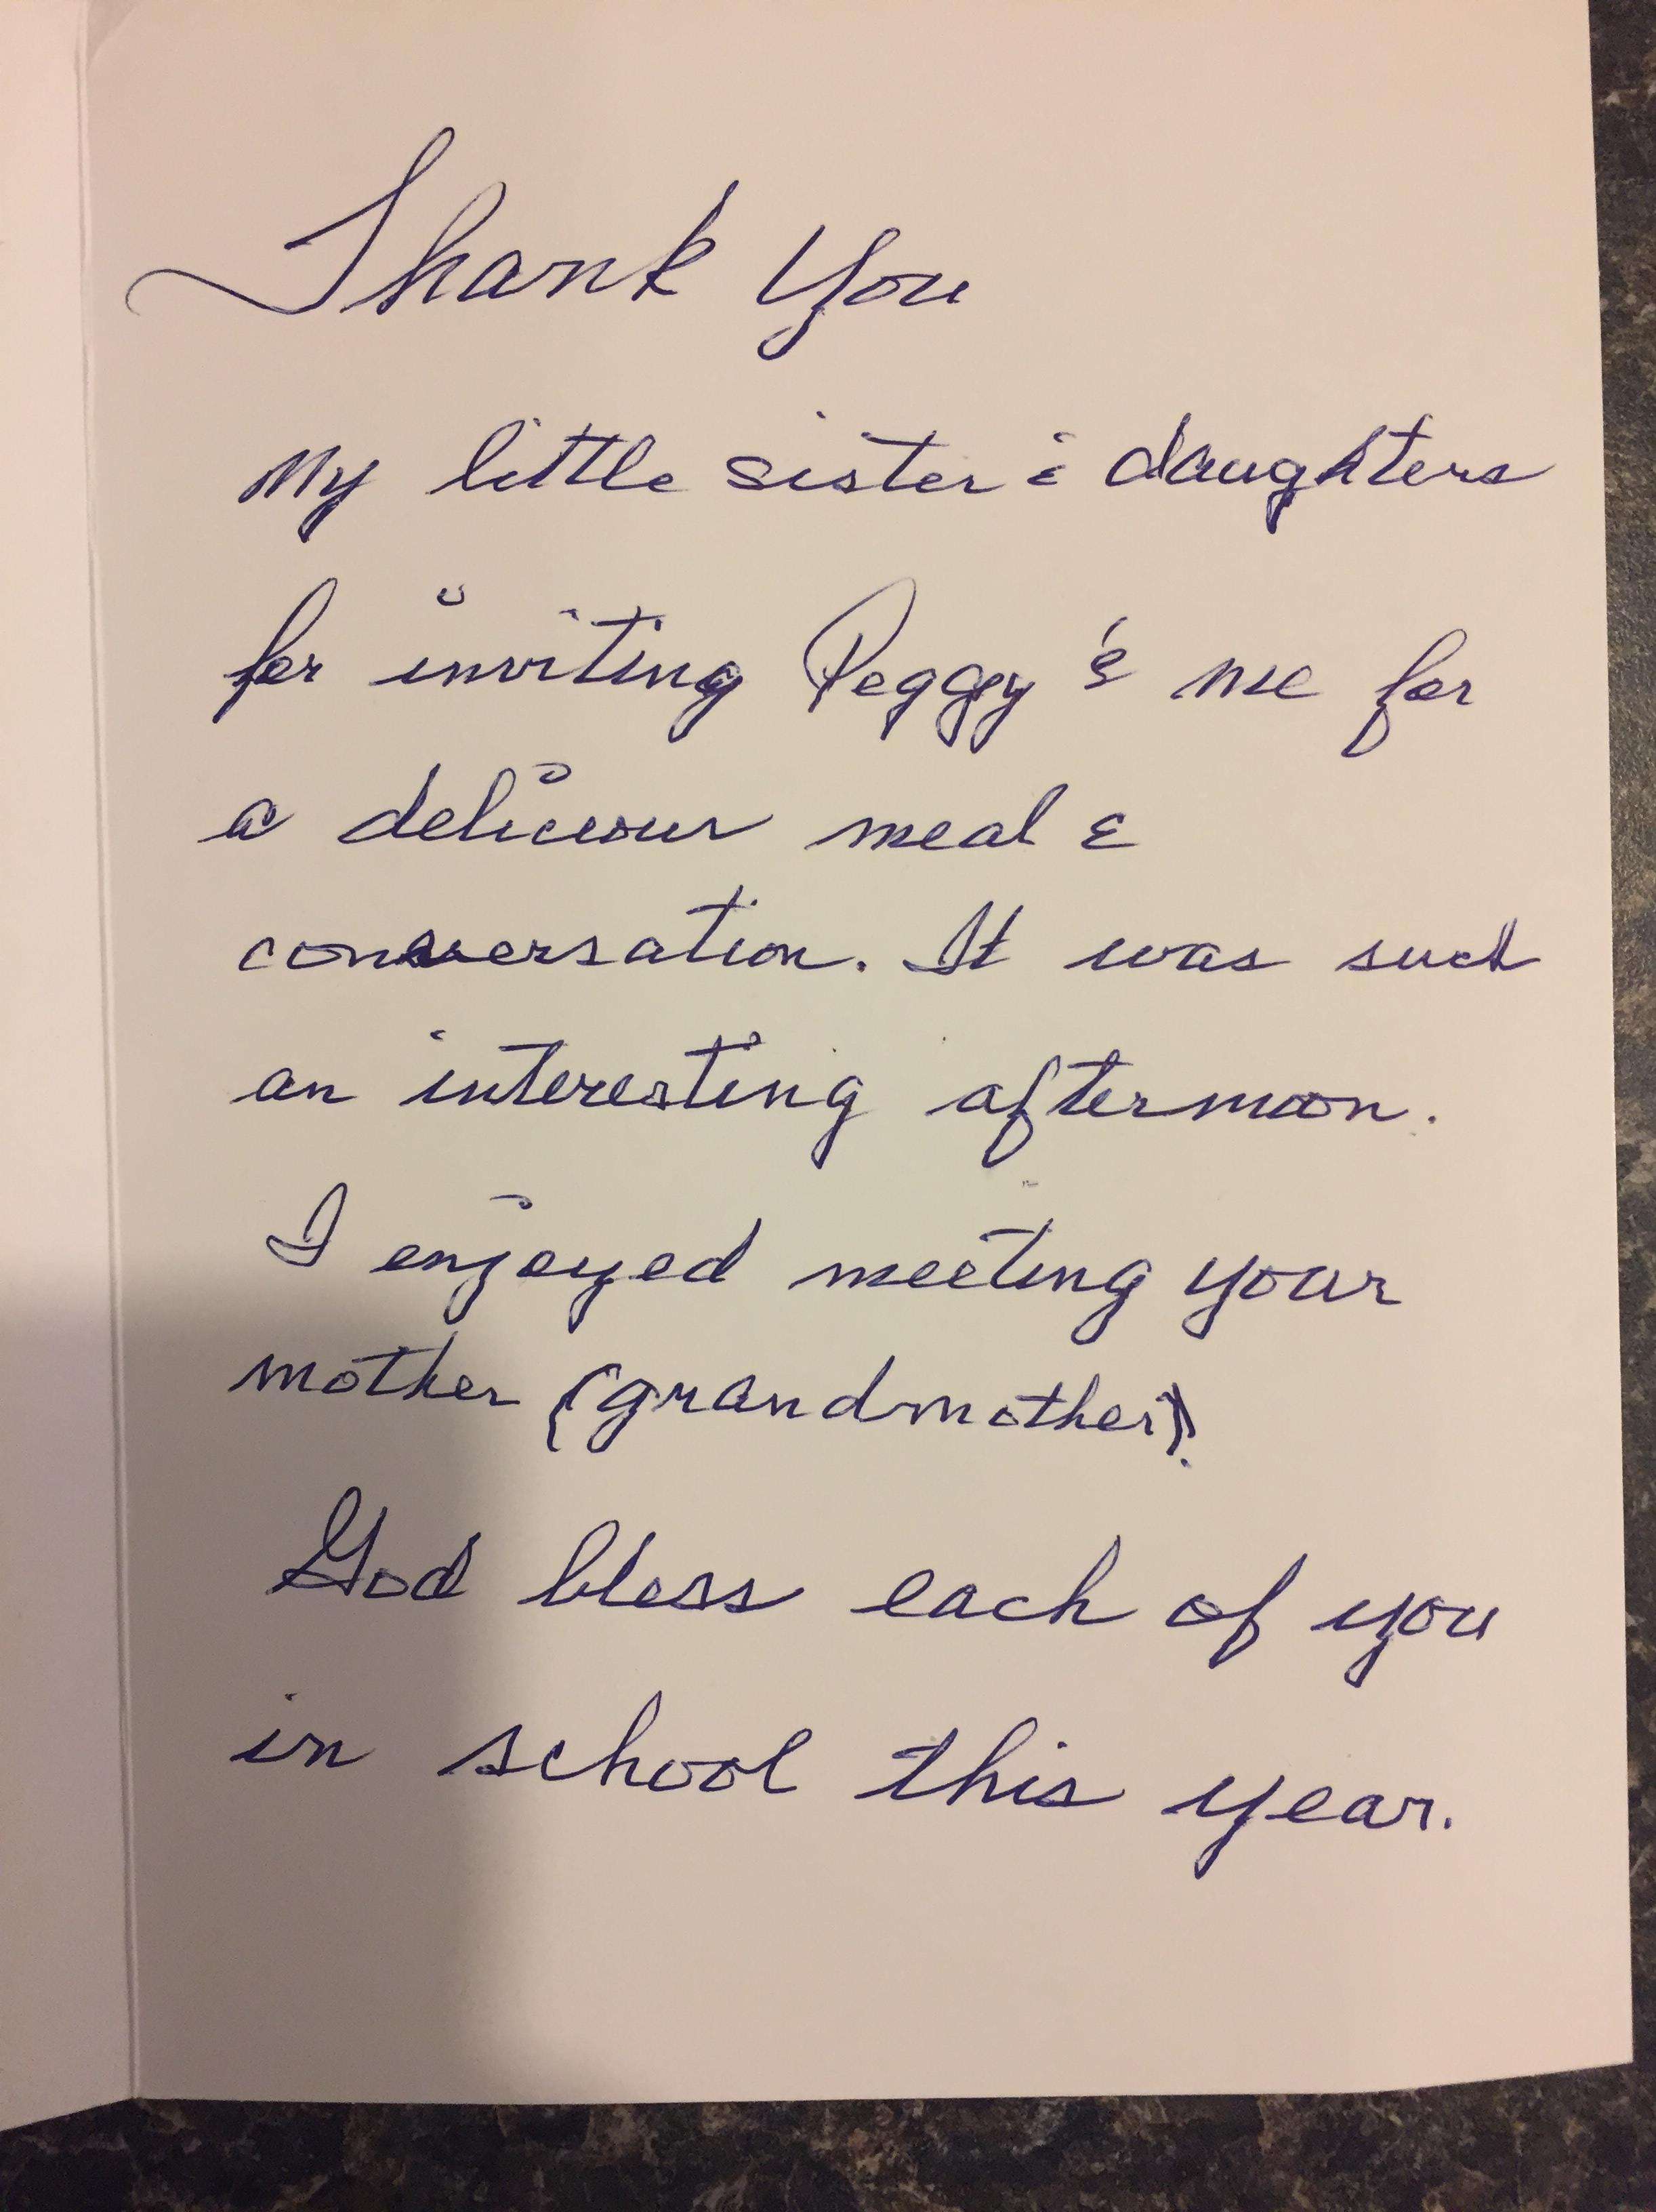 Thank You
My little sister & daughters
for inviting Peggy & me for
a delicious meal &
conversation. It was such
an interesting afternoon.
I enjoyed meeting your
mother (grandmother).
God bless each of you
in school this year.